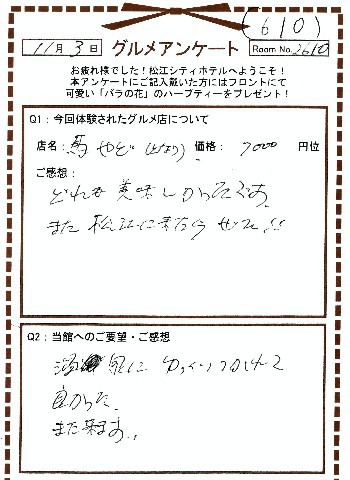 (610)
11月3日 グルメアンケート Room No.2610
お疲れ様でした！松江シティホテルへようこそ！
本アンケートにご記入戴いた方にはフロントにて
可愛い「バラの花」のハーブティーをプレゼント！
Q1：今回体験されたグルメ店について
店名：馬やど 価格：7000 円位
ご感想：
どれも美味しかったです。
また松江に来たら ぜひ!!
Q2：当館へのご要望・ご感想
風呂に ゆっくりつかれて
良かった。
また来ます。